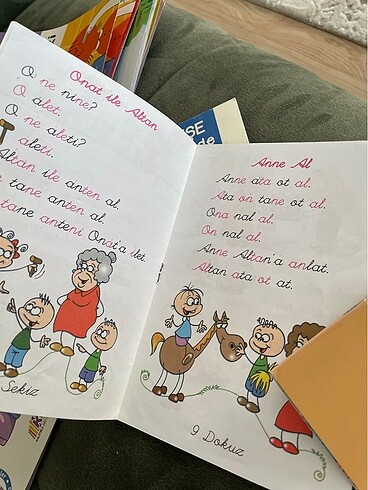 Onat ile Altan
O ne nine?
O alet.
O ne aleti?
T aleti.
Altan ile anten al.
tane anten al.
tane anteni Onat'a ilet.
Sekiz
SE
de
Anne Al
Anne ata ot al.
Ata on tane ot al.
Ona nal al.
On nal al.
Anne Altan'a anlat.
Altan ata ot at.
9 Dokuz